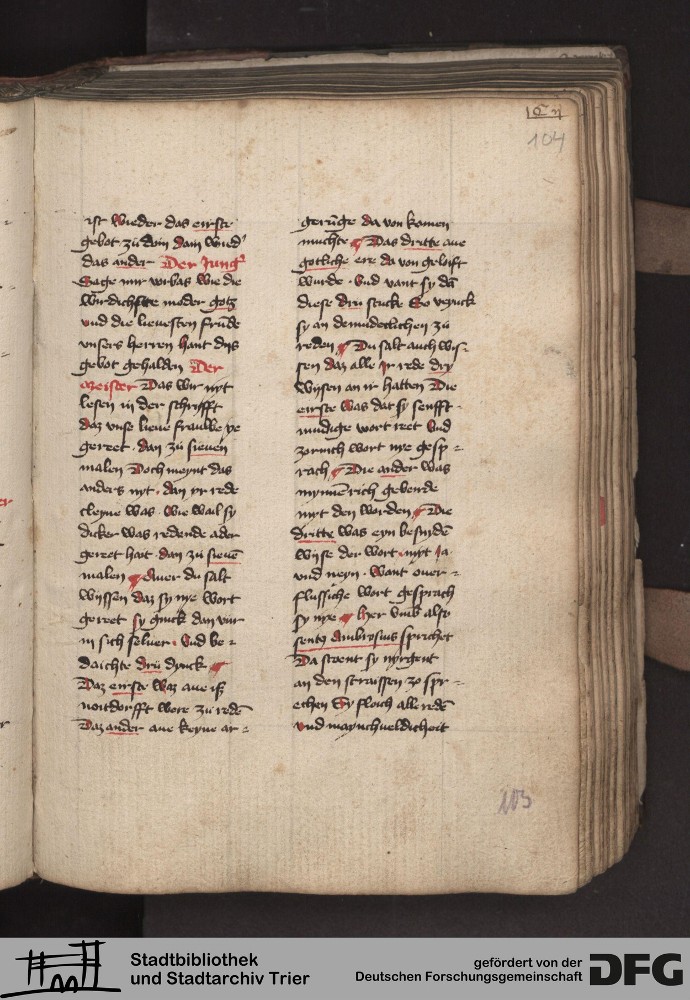 104
ist wieder das eirste
gebot zu dom dam wied'
das ander Der Jung'
Sage mir wibas wie die
wirdichste moder gotz
vnd die lieuesten frude
vnsers herren hant dys
gebot gehalden Der
Meister Das wir nyt
lesen in der schrifft
daz vnse lieue frauwe ye
gerret dan zu sieuen
malen Doch meynt das
anders nyt dan yr rede
cleyne was wie wail sy
dicker was redende ader
gerret hait dan zu sieue
malen Auer du salt
wyssen daz sy nye wort
gerret sy gynck dan vur
in sich seluer Vnd be=
daichte dru dynck
Daz eirste waz aue is
noitdorfft were zu rede
Daz ander aue keyne ar=
geruge da von komen
muchte Das dritte aue
gotliche ere da von geloist
wurde Vnd want sy da
diese dru stucke So
sy an demudeclichen zu
reden Du salt auch wis=
sen daz alle ir rede dry
wysen an ir hatten Die
eirste was dat sy senfft
mudige wort rret Vnd
zornich wort nye gesp=
rach Die ander was
mynnerich geberde
myt den worden Die
dritte was eyn besnyde
wyse der wort myt ja
vnd neyn Want ouer=
flussiche wort gesprach
sy nye her vmb also
sentz Ambrosius sprichet
Da stoent sy nyrgent
an den straissen zo spr=
echen Sy floich alle rede
vnd maynchueldicheit
103
Stadtbibliothek
und Stadtarchiv Trier
gefördert von der
Deutschen Forschungsgemeinschaft
DFG